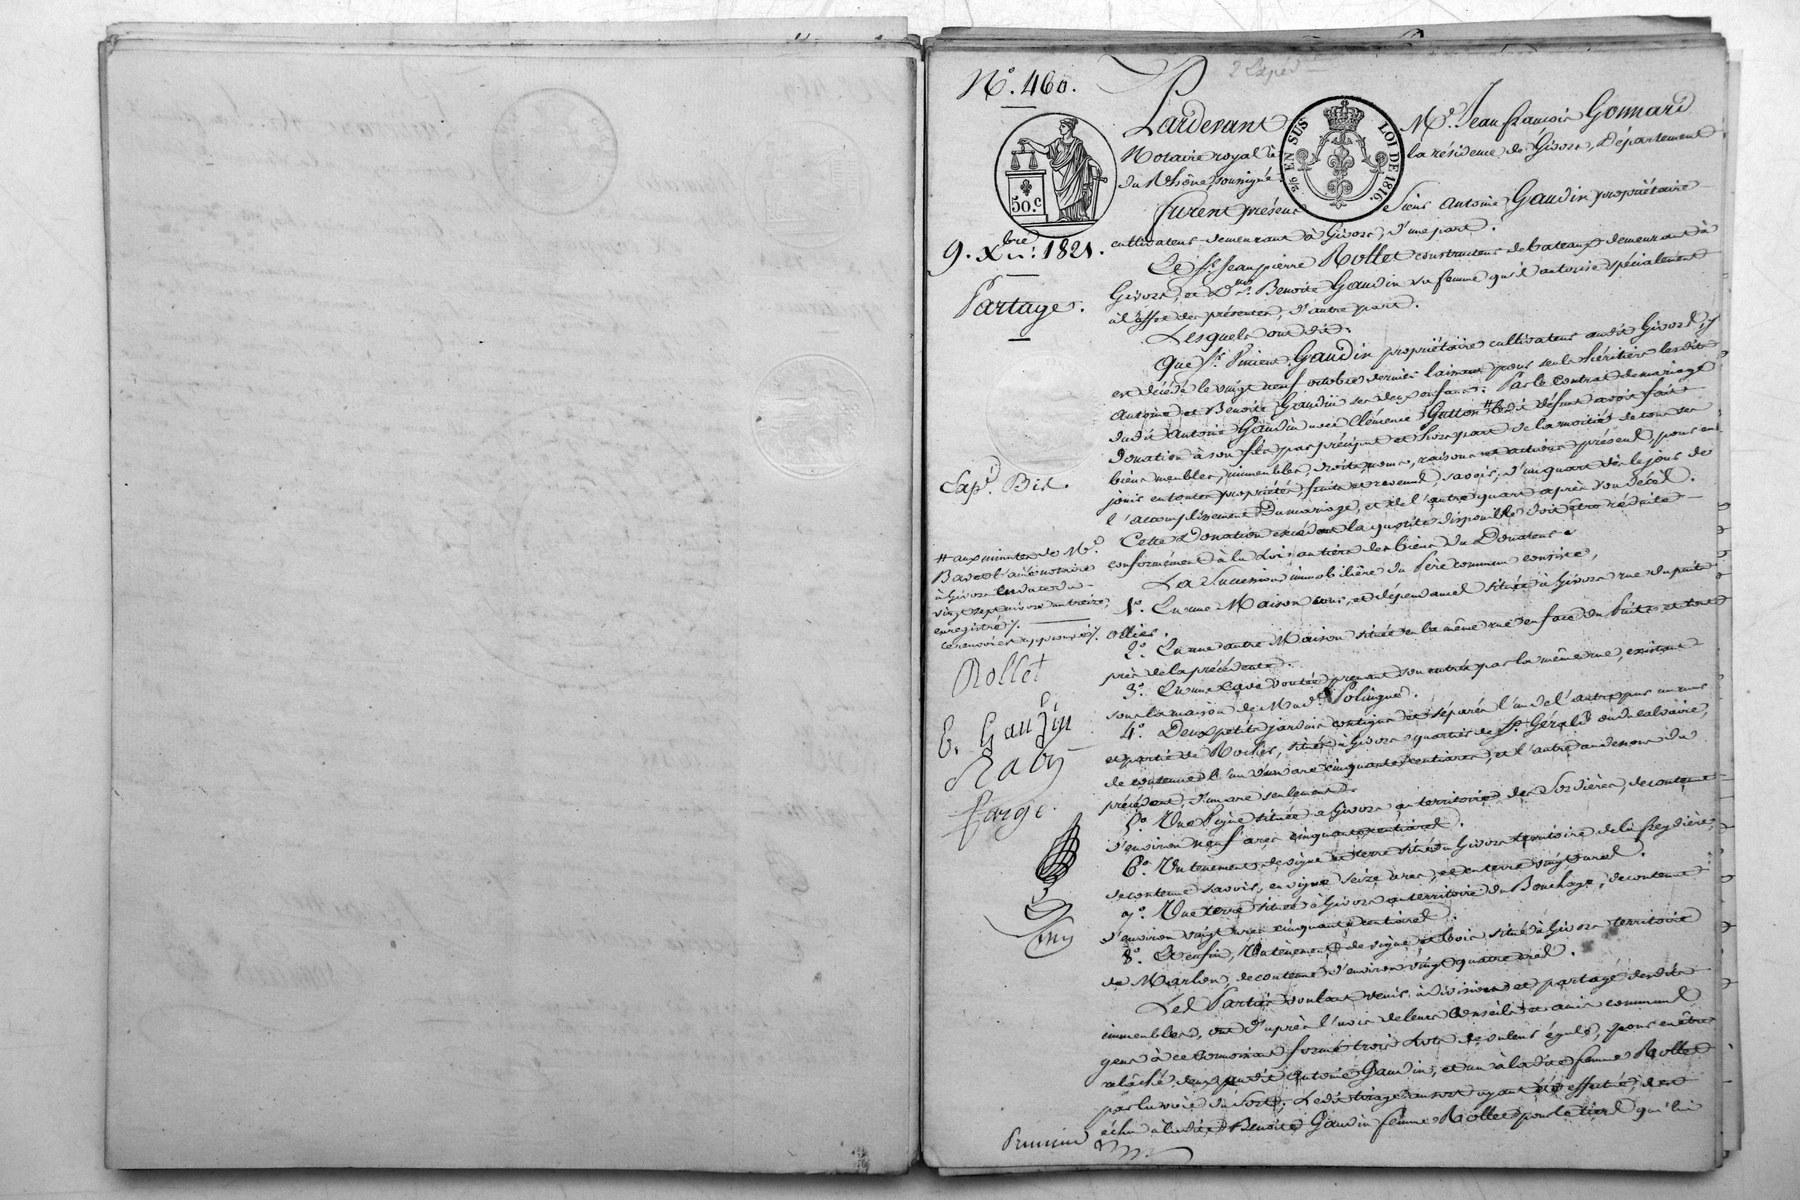 2 Expéd.
N°. 460.
Pardevant Me. Jean françois Gonnard
Notaire royal à la résidence de Givors, Département
du Rhône soussigné.
furent présens Sieur Antoine Gaudin propriétaire
50.c
EN SUS LOI DE 1816.
9. Xbre 1821.
Partage.
cultivateur demeurant à Givors, d'une part.
Le Sr. Jean pierre Rollet constructeur de bateaux demeurant à
Givors, et Dme. Benoite Gaudin sa femme qu'il autorise spécialement
à l'effet des présentes, d'autre part.
Lesquels ont dit:
Que Sr. Vincent Gaudin propriétaire cultivateur audit Givors, y
est décédé le vingt neuf octobre dernier laissant pour seuls héritiers lesdits
Antoine et Benoite Gaudin ses deux enfans. Par le Contrat de mariage
dudit Antoine Gaudin avec Clémence Gatton # ledit défunt avoit fait
donation à son fils par préciput et hors part de la moitié de tous ses
biens meubles, immeubles, droits, noms, raisons et actions présens, pour en
jouir en toute propriété, fruits et revenus, savoir, d'un quart dès le jour de
l'accomplissement du mariage, et de l'autre quart après son décès.
Cette Donation excédant la quotité disponible doit être réduite
conformément à la Loi au tiers des biens du Donateur.
La Succession immobilière du Père commun consiste,
1°. En une Maison cour, et dépendances située à Givors rue du puits
ollier.
2°. En une autre Maison située en la même rue en face du Puits et tout
près de la précédente.
3°. En une Cave voutée prenant son entrée par la même rue, existant
sous la maison de Made. Solingue.
4°. Deux petits jardins contigus et séparés l'un de l'autre par un mur
et partie de Rocher, situés à Givors quartier de St. Gérald ou du Calvaire,
de contenue l'un d'un are cinquante centiares, et l'autre au dessous du
précédent, d'un are seulement.
5°. Une Vigne située à Givors au territoire des Sordières, de contenue
d'environ neuf ares cinquante centiares.
6°. Un tenement de vigne et terre situé à Givors territoire de la freydière,
de contenue savoir, en vigne seize ares, et en terre vingt ares.
7°. Une terre située à Givors au territoire du Bouchage, de contenue
d'environ vingt ares cinquante centiares.
8°. Et enfin, Un tènement de vigne et bois situé à Givors territoire
de Marlon, de contenue d'environ vingt quatre ares.
Les Parties voulant venir à division et partage desdits
immeubles, ont d'après l'avis de leurs Conseils et amis communs
gens à ce connoissant formé trois Lots de valeurs égales, pour en être
relâché deux audit Antoine Gaudin, et un à ladite femme Rollet
par la voie du Sort. Ledit tirage au sort ayant été effectué, il est
échu à ladite Benoite Gaudin femme Rollet pour le tiers qui lui
Expé. Bis.
# aux minutes de Me.
Bavet l'ainé notaire
à Givors en date du
vingt sept nivose an treize,
enregistré.
Ce renvoi approuvé.
Rollet
B. Gaudin
Raby
farge.